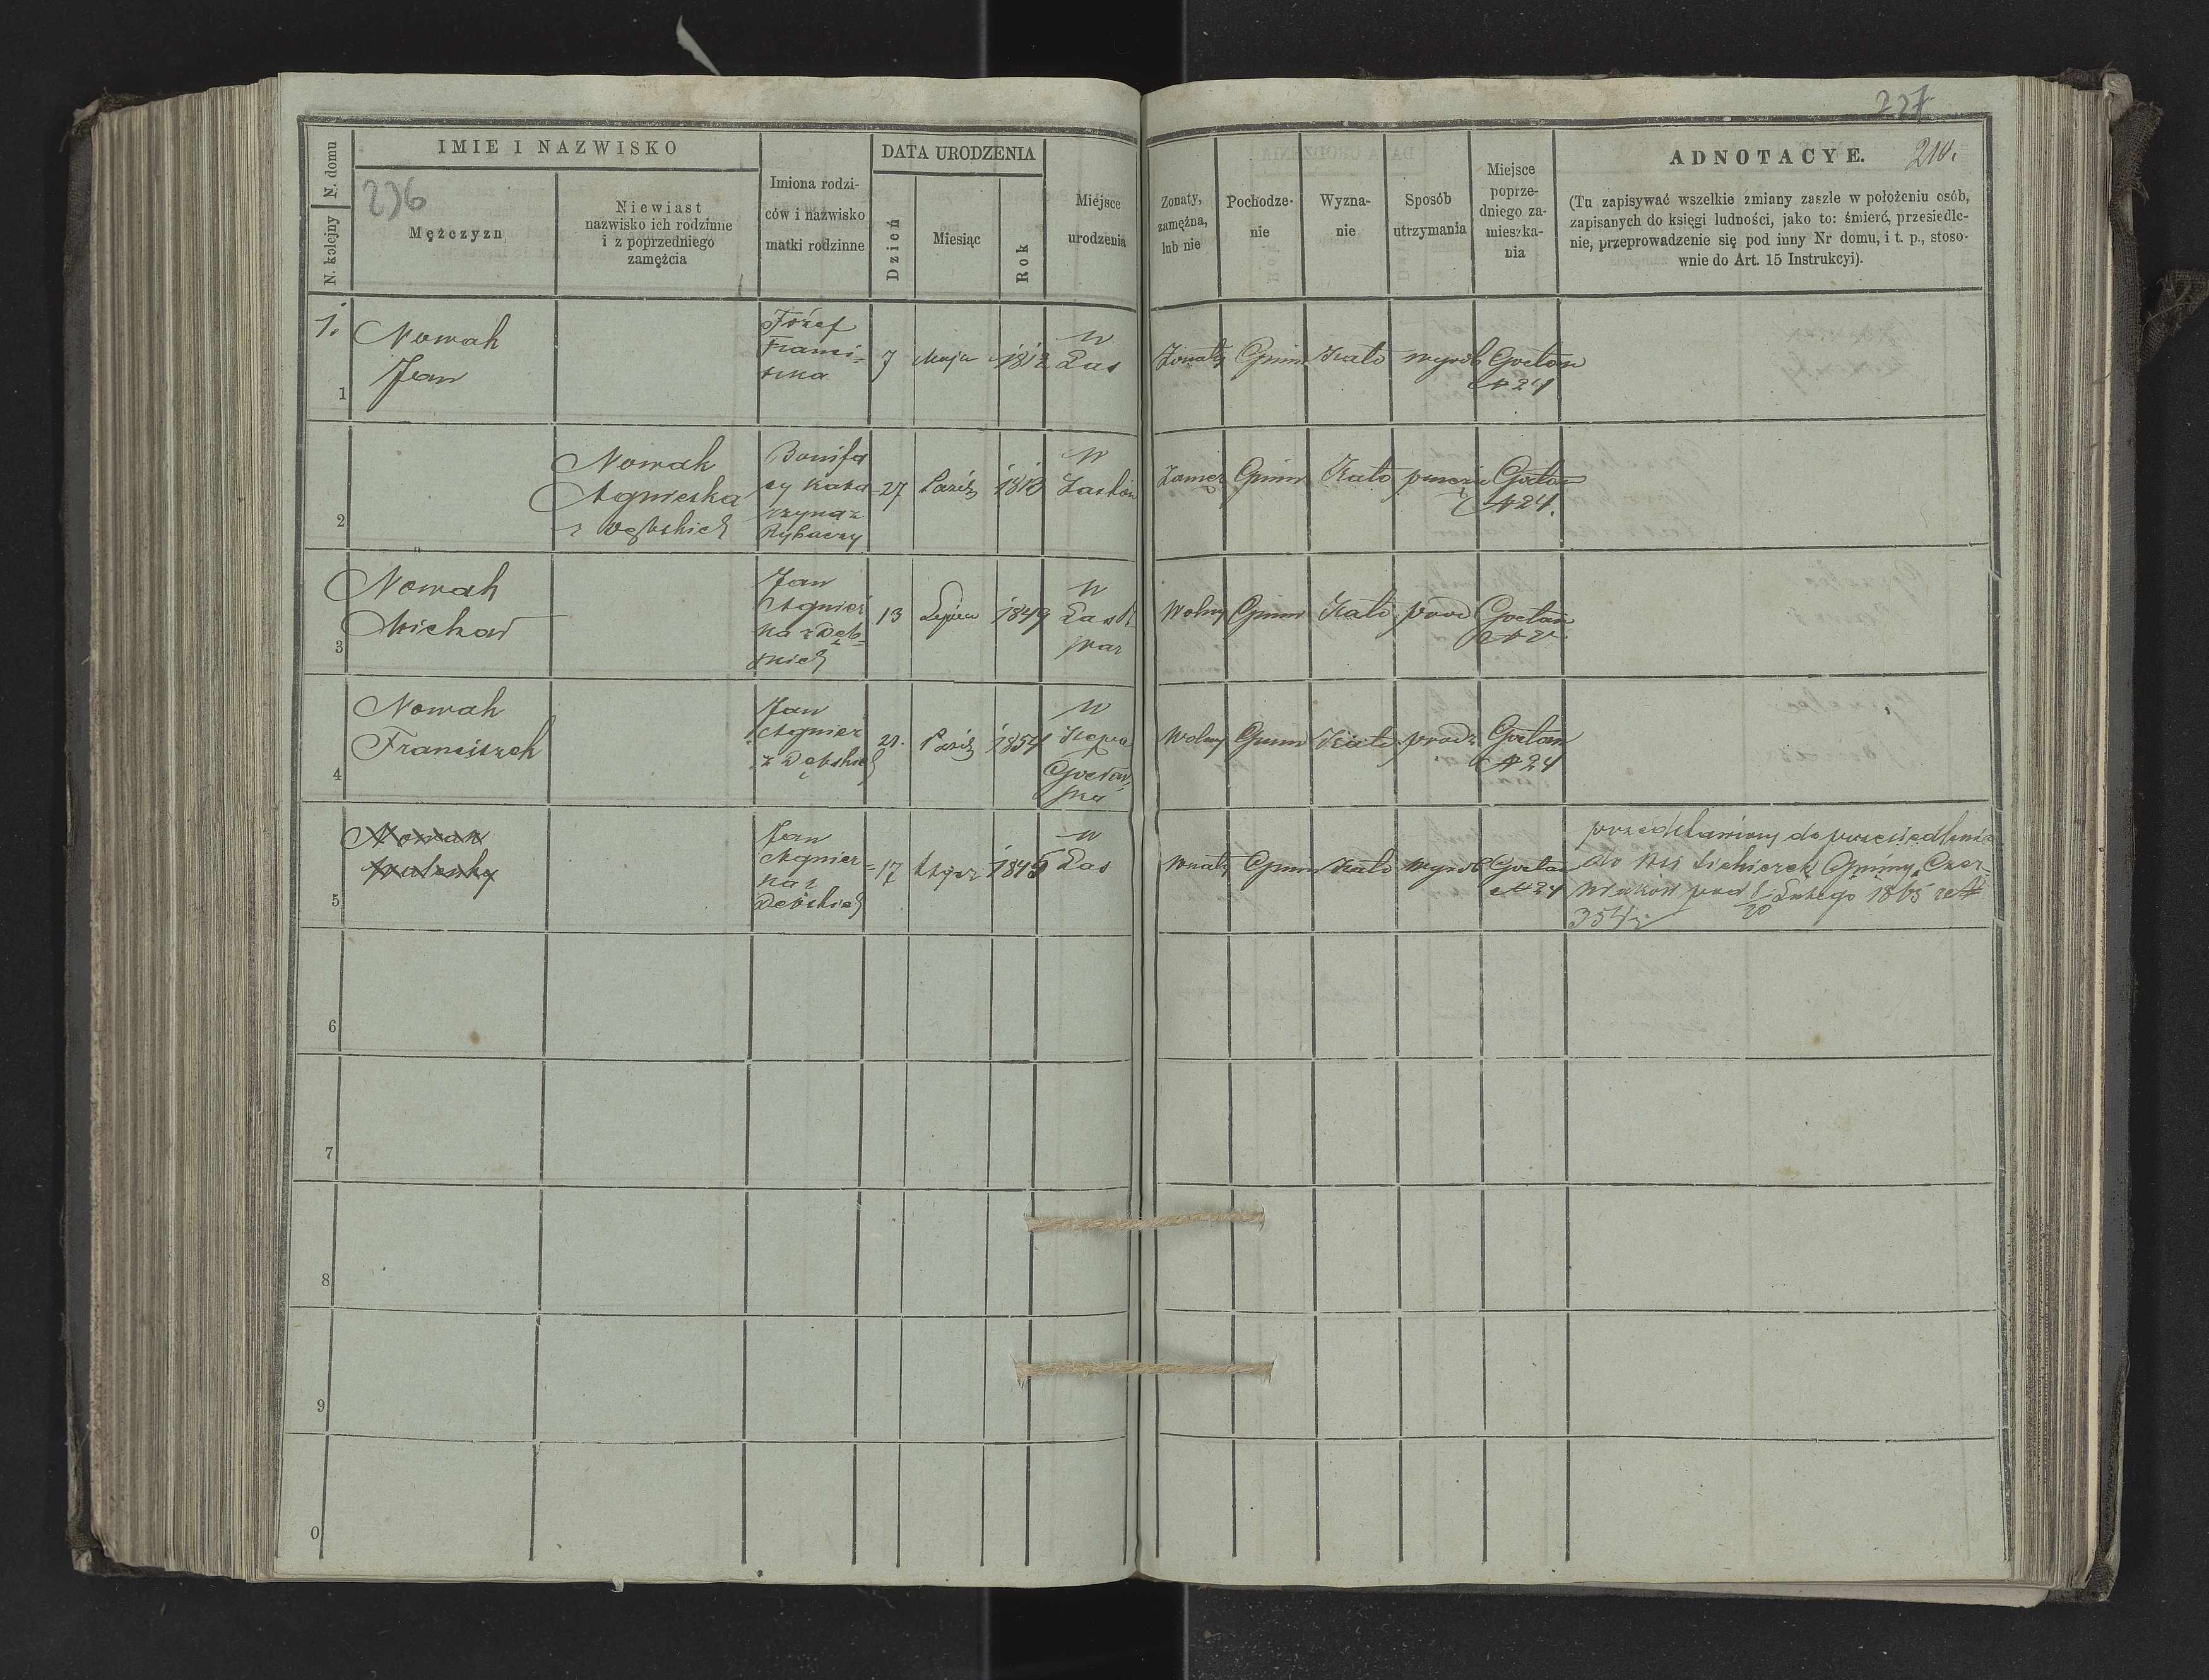 227
N. domu
N. kolejny
IMIE I NAZWISKO
236
Mężczyzn
Niewiast
nazwisko ich rodzinne
i z poprzedniego
zamężcia
Imiona rodzi-
ców i nazwisko
matki rodzinne
DATA URODZENIA
Dzień
Miesiąc
Rok
Miejsce
urodzenia
Zonaty,
zamężna,
lub nie
Pochodze-
nie
Wyzna-
nie
Sposób
utrzymania
Miejsce
poprze-
dniego za-
mieszka-
nia
ADNOTACYE.
210.
(Tu zapisywać wszelkie zmiany zaszłe w położeniu osób,
zapisanych do księgi ludności, jako to: śmierć, przesiedle-
nie, przeprowadzenie się pod inny Nr domu, i t. p., stoso-
wnie do Art. 15 Instrukcyi).
1.
1
Nowak
Jan
Józef
Franci-
szka
7
Maja
1812
w
Las
Żonaty
Gmin
Kato
wyrob
Gocław
N 24
2
Nowak
Agnieszka
z Dębskich
Bonifa
cy Kata
rzyna z
Rybaczy
27
Paźdz
1813
w
Zamęż
Gmin
Kato
Gocław
N 24.
3
Nowak
Michał
Jan
Agniesz
ka z Dęb-
skich
13
Lipiec
1849
w
Wolny
Gmin
Kato
Gocław
4
Nowak
Franciszek
Jan
Agniesz
z Dębskich
21.
Paźdz
1854
w
Kępa
Gocław
ska
Wolny
Gmin
Kato
Gocław
N 24
5
Nowak
Walenty
Jan
Agniesz-
ka z
Dębskich
17
w
Las
Gmin
Kato
wyrob
Gocław
N 24
przedstawiony do przesiedlenia
do wsi Siekierek Gminy Czer-
niaków pod 8/20 Lutego 1865 r N
354
6
7
8
9
0